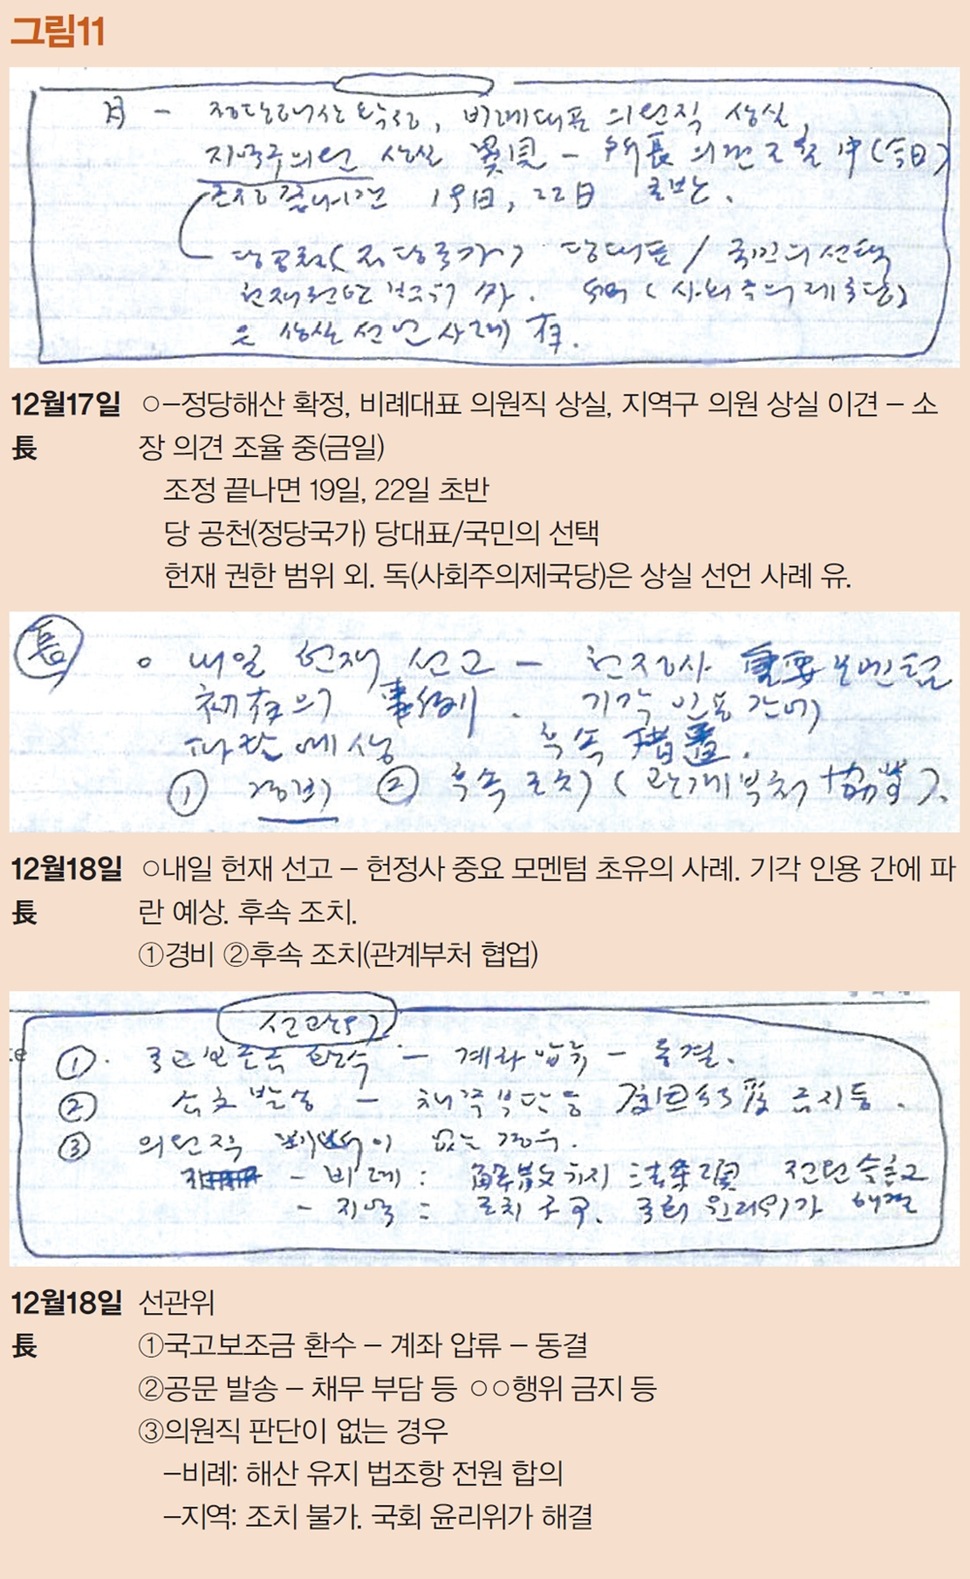 그림11
月 - 정당해산 확정, 비례대표 의원직 상실,
지역구의원 상실 異見 - 所長 의견 조율 中(今日)
조정 끝나면 19日, 22日 초반.
당공천(정당국가) 당대표 / 국민의 선택
헌재권한 범위 外. (사회주의제국당)
은 상실 선언 사례 有.
12월17일 ○–정당해산 확정, 비례대표 의원직 상실, 지역구 의원 상실 이견 – 소
長 장 의견 조율 중(금일)
조정 끝나면 19일, 22일 초반
당 공천(정당국가) 당대표/국민의 선택
헌재 권한 범위 외. 독(사회주의제국당)은 상실 선언 사례 유.
長 ○ 내일 헌재 선고 - 헌정사 重要 모멘텀
初有의 事例. 기각 인용 간에
파란 예상 후속 措置.
① 경비 ② 후속 조치(관계부처 協業).
12월18일 ○내일 헌재 선고 – 헌정사 중요 모멘텀 초유의 사례. 기각 인용 간에 파
長 란 예상. 후속 조치.
①경비 ②후속 조치(관계부처 협업)
선관위
①. 국고보조금 환수 - 계좌 압류 - 동결.
② 공문 발송 - 채무부담 등 금지 등.
③ 의원직 판단이 없는 경우.
- 비례: 解散 전원
- 지역: 조치 불가. 국회 윤리위가 해결
12월18일 선관위
長 ①국고보조금 환수 – 계좌 압류 – 동결
②공문 발송 – 채무 부담 등 ○○행위 금지 등
③의원직 판단이 없는 경우
–비례: 해산 유지 법조항 전원 합의
–지역: 조치 불가. 국회 윤리위가 해결